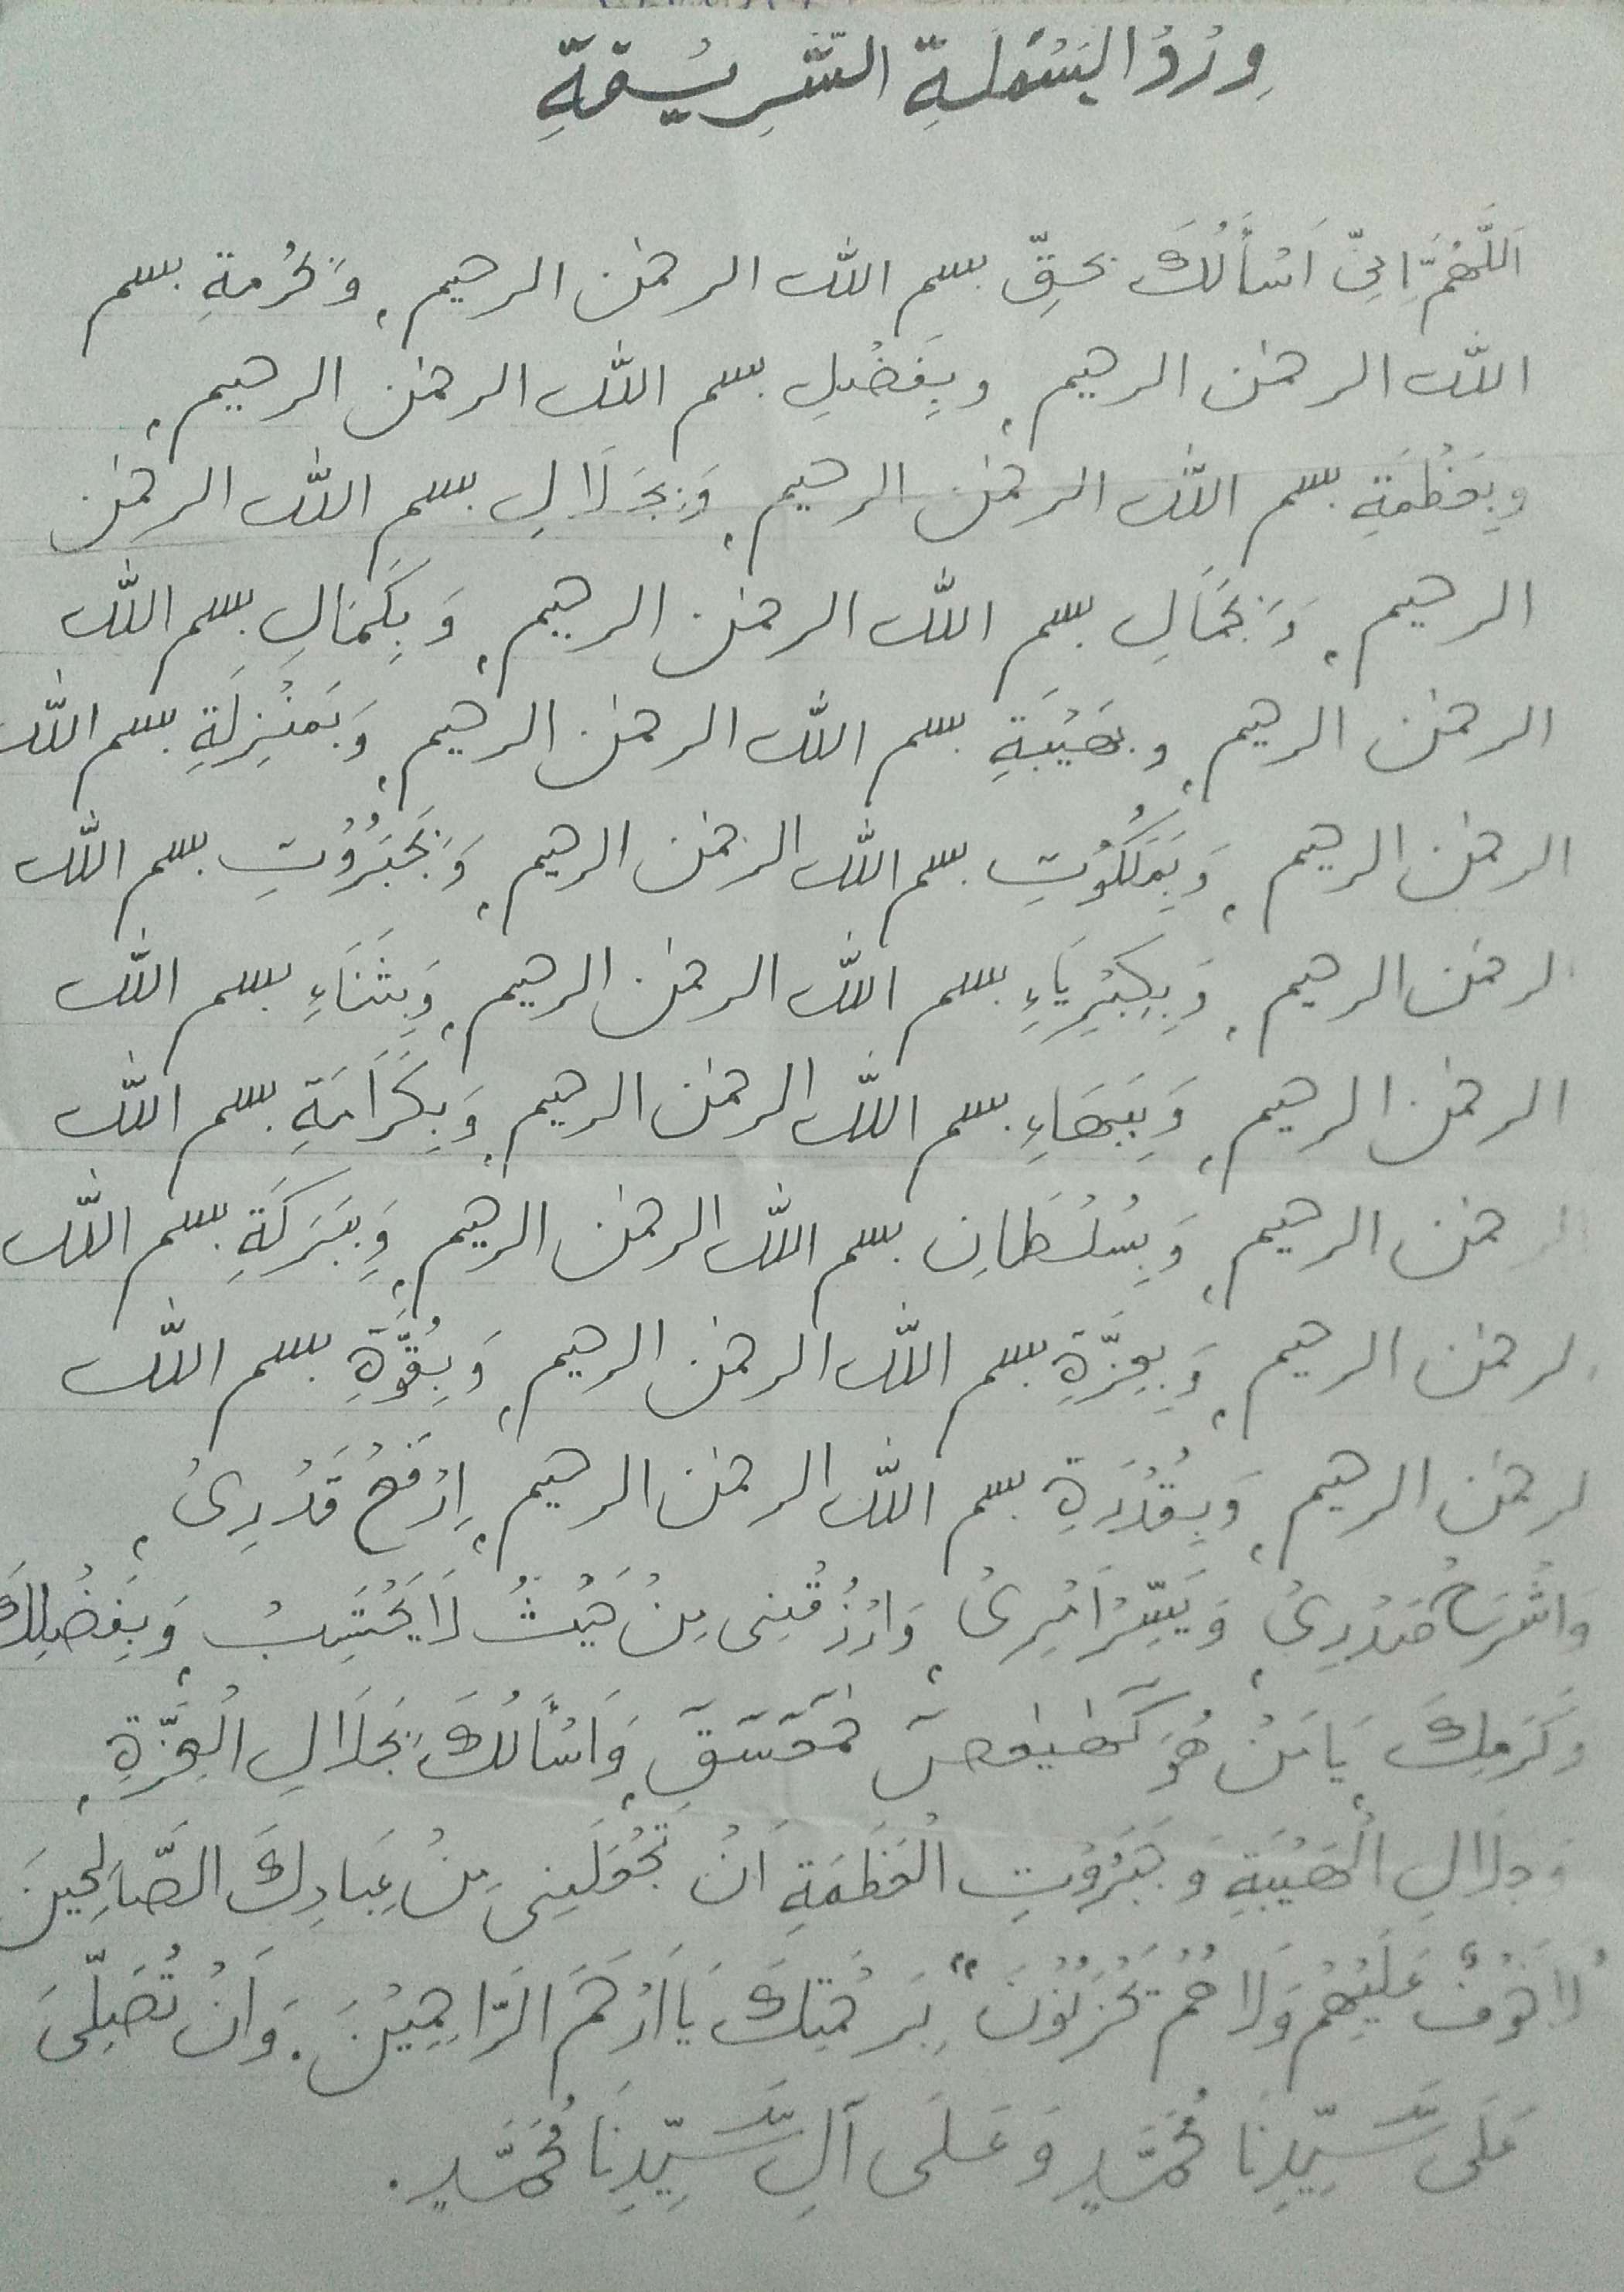 وِرْدُ الْبَسْمَلَةِ الشَّرِيْفَةِ
اَللَّهُمَّ اِنِّى اَسْأَلُكَ بِحَقِّ بسم الله الرحمٰن الرحيم، وَبِحُرْمَةِ بسم
الله الرحمٰن الرحيم، وبِفَضْلِ بسم الله الرحمٰن الرحيم،
وبِعَظْمَةِ بسم الله الرحمٰن الرحيم، وَبِجَلَالِ بسم الله الرحمٰن
الرحيم، وَبِجَمَالِ بسم الله الرحمٰن الرحيم، وَبِكَمَالِ بسم الله
الرحمٰن الرحيم، وبِهَيْبَةِ بسم الله الرحمٰن الرحيم، وَبِمَنْزِلَةِ بسم الله
الرحمٰن الرحيم، وَبِمَلَكُوْتِ بسم الله الرحمٰن الرحيم، وَبِجَبَرُوْتِ بسم الله
الرحمٰن الرحيم، وَبِكِبْرِيَاءِ بسم الله الرحمٰن الرحيم، وَبِثَنَاءِ بسم الله
الرحمٰن الرحيم، وَبِبَهَاءِ بسم الله الرحمٰن الرحيم، وَبِكَرَامَةِ بسم الله
الرحمٰن الرحيم، وَبِسُلْطَانِ بسم الله الرحمٰن الرحيم، وَبِبَرَكَةِ بسم الله
الرحمٰن الرحيم، وَبِعِزَّةِ بسم الله الرحمٰن الرحيم، وَبِقُوَّةِ بسم الله
الرحمٰن الرحيم، وَبِقُدْرَةِ بسم الله الرحمٰن الرحيم، اِرْفَعْ قَدْرِىْ،
وَاشْرَحْ صَدْرِىْ، وَيَسِّرْ اَمْرِىْ، وَارْزُقْنِى مِنْ حَيْثُ لَا يَحْتَسِبْ، وَبِفَضْلِكَ
وَكَرَمِكَ، يَا مَنْ هُوَ كٓهٰيٰعٓصٓ حٰمٓعٓسٓقٓ، وَاَسْأَلُكَ بِجَلَالِ الْعِزَّةِ،
وَجِلَالِ الْهَيْبَةِ وَجَبَرُوْتِ الْعَظَمَةِ اَنْ تَجْعَلَنِى مِنْ عِبَادِكَ الصَّالِحِينَ
لَا خَوْفٌ عَلَيْهِمْ وَلَا هُمْ يَحْزَنُوْنَ" بِرَحْمَتِكَ يَا اَرْحَمَ الرَّاحِمِيْنَ. وَاَنْ تُصَلِّىَ
عَلَى سَيِّدِنَا مُحَمَّدٍ وَعَلَى آلِ سَيِّدِنَا مُحَمَّدٍ.